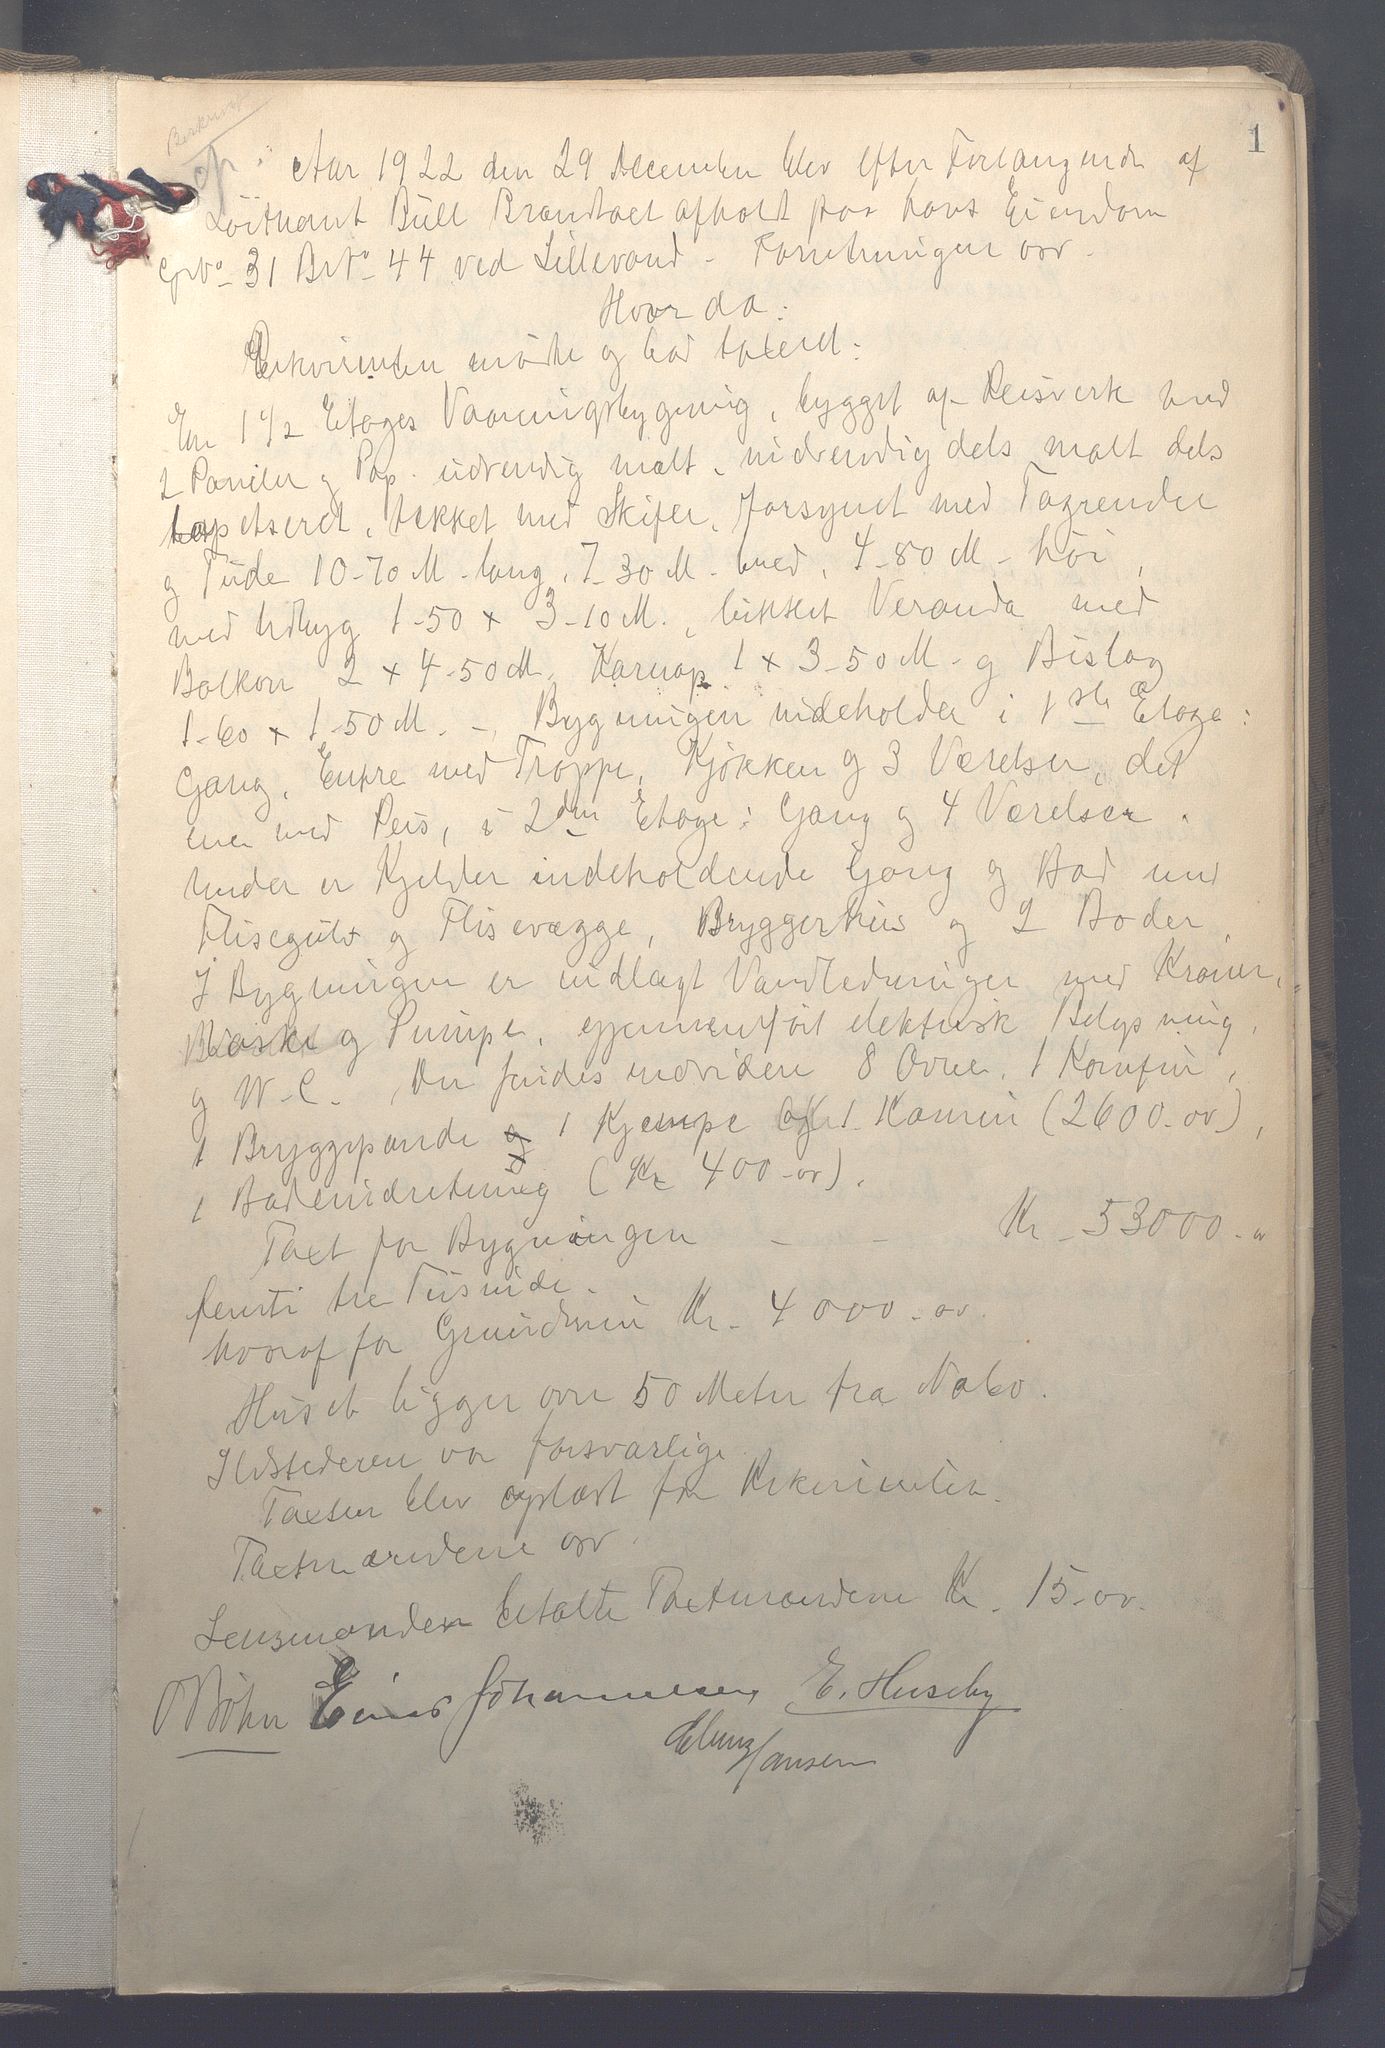 1
op.
Aar 1922 den 29 December blev efter Forlangende af
Löitnant Bull Brandtaxt afholdt paa hans Eiendom
Gr No 31 Br No 44 ved Lillevand - Forretningen osv.
Hvorda:
Rekvirenten mödte og bad taxeret:
En 1 1/2 Etages Vaaningsbygning, bygget af Reisverk med
2 Paneler og Pap. udvendig malt, indvendig dels malt dels
tapetseret, tækket med Skifer, forsynet med Tagrender
og Tude 10-70 M - lang, 7-30 M - bred, 4-80 M - höi,
med Udbyg 1-50 x 3-10 M., lukket Veranda med
Balkon 2 x 4-50 M, Karnap 1 x 3-50 M - og Bislag
1-60 x 1-50 M. -, Bygningen indeholder i 1ste Etage:
Gang, Entre med Trappe, Kjökken og 3 Værelser, det
ene med Peis, i 2den Etage: Gang og 4 Værelser.
Under er Kjelder indeholdende Gang og Bad med
Flisegulv og Flisevægge, Bryggerhus og 2 Boder,
I Bygningen er indlagt Vandledninger med Kraner,
Vaske og Pumpe, gjennemfört elektrisk Belysning,
og W.C. Der findes endvidere 8 Ovne, 1 Komfur,
1 Bryggepande og 1 Kjempe 1 Kamin (2600 - ør),
1 Badeindretning (Kr 400 - ør).
Taxt for Bygningen - - Kr - 53000 - ør
femti tre Tusinde.
hvoraf for Grundmur Kr - 4000 - ør.
Huset ligger over 50 Meter fra Nabo.
Ildstederne var forsvarlige
Taxten blev oplæst for Rekvirenten.
Taxtmændene osv.
Lensmanden betalte Taxtmændene Kr. 15 - ør.
Böhn Einar Johannessen E. Huseby
Hansen